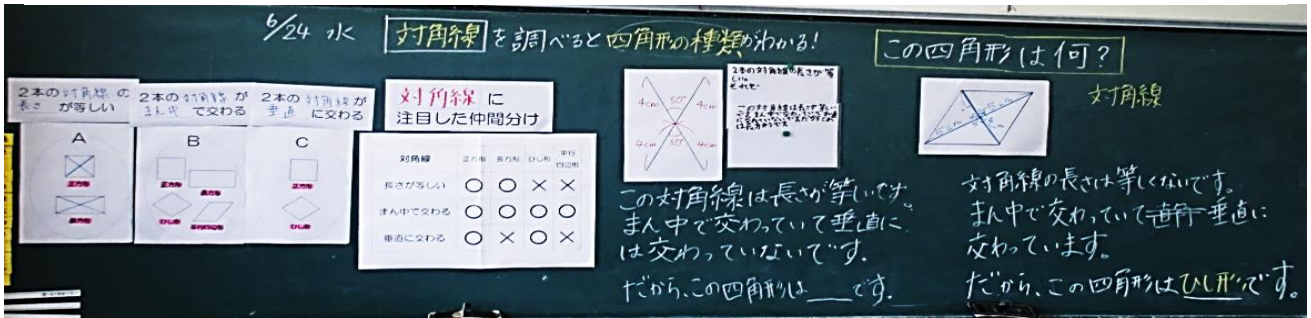 6/24 水 対角線を調べると四角形の種類がわかる!
2本の対角線の
長さ が等しい
A
正方形
長方形
2本の対角線が
まん中 で交わる
B
正方形
長方形
ひし形
平行四辺形
2本の対角線が
垂直 に交わる
C
正方形
ひし形
対角線に
注目した仲間分け
対角線 正方形 長方形 ひし形 平行四辺形
長さが等しい ○ ○ × ×
まん中で交わる ○ ○ ○ ○
垂直に交わる ○ × ○ ×
4cm 50° 4cm
4cm 50° 4cm
2本の対角線の長さが等
しい。
この対角線は長さが等しいです。
まん中で交わっていて垂直に
は交わっていないです。
だから、この四角形は__です。
この四角形は何?
対角線
対角線の長さは等しくないです。
まん中で交わっていて垂直に
交わっています。
だから、この四角形はひし形です。